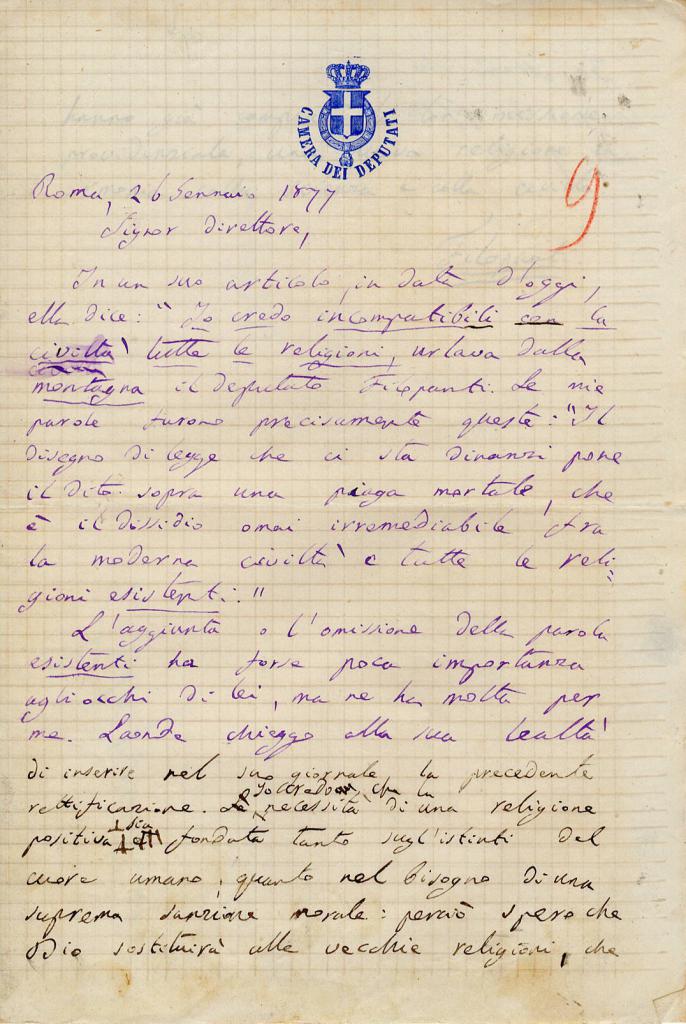 CAMERA DEI DEPUTATI
9
Roma, 26 Gennaio 1877
Signor Direttore,
In un suo articolo, in data d'oggi,
ella dice: "Io credo incompatibili con la
civiltà tutte le religioni, urlava dalla
montagna il deputato Filopanti. Le mie
parole furono precisamente queste: "Il
disegno di legge che ci sta dinanzi pone
il dito sopra una piaga mortale, che
è il dissidio omai irremediabile fra
la moderna civiltà e tutte le reli=
gioni esistenti."
L'aggiunta o l'omissione della parola
esistenti ha forse poca importanza
agli occhi di lei, ma ne ha molta per
me. Laonde chieggo alla sua lealtà
di inserire nel suo giornale la precedente
Io credo che la
rettificazione. necessità di una religione
sia
positiva fondata tanto sugl'istinti del
cuore umano, quanto nel bisogno di una
suprema sanzione morale: perciò spero che
Dio sostituirà alle vecchie religioni, che